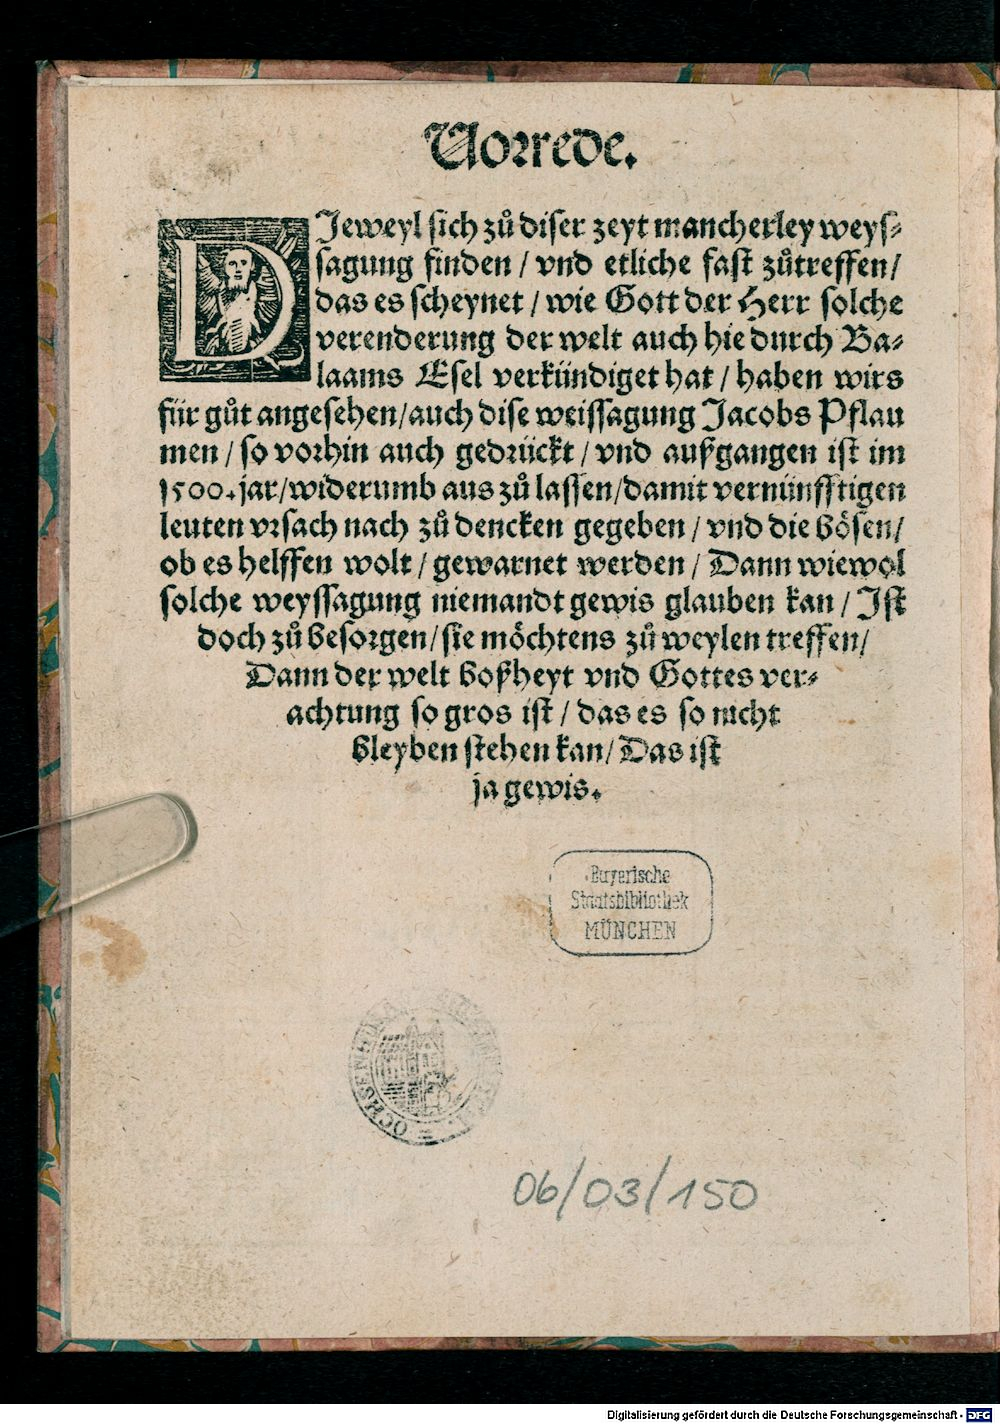 Vorrede.
DJeweyl sich zů diser zeyt mancherley weys-
sagung finden / vnd etliche fast zůtreffen /
das es scheynet / wie Gott der Herr solche
verenderung der welt auch hie durch Ba-
laams Esel verkündiget hat / haben wirs
für gůt angesehen / auch dise weissagung Jacobs Pflau
men / so vorhin auch gedrückt / vnd außgangen ist im
1500. jar / widerumb aus zů lassen / damit vernünfftigen
leuten vrsach nach zů dencken gegeben / vnd die bösen /
ob es helffen wolt / gewarnet werden / Dann wiewol
solche weyssagung niemandt gewis glauben kan / Jst
doch zů besorgen / sie möchtens zů weylen treffen /
Dann der welt boßheyt vnd Gottes ver-
achtung so gros ist / das es so nicht
bleyben stehen kan / Das ist
ja gewis.
Bayerische
Staatsbibliothek
MÜNCHEN
06/03/150
Digitalisierung gefördert durch die Deutsche Forschungsgemeinschaft - DFG